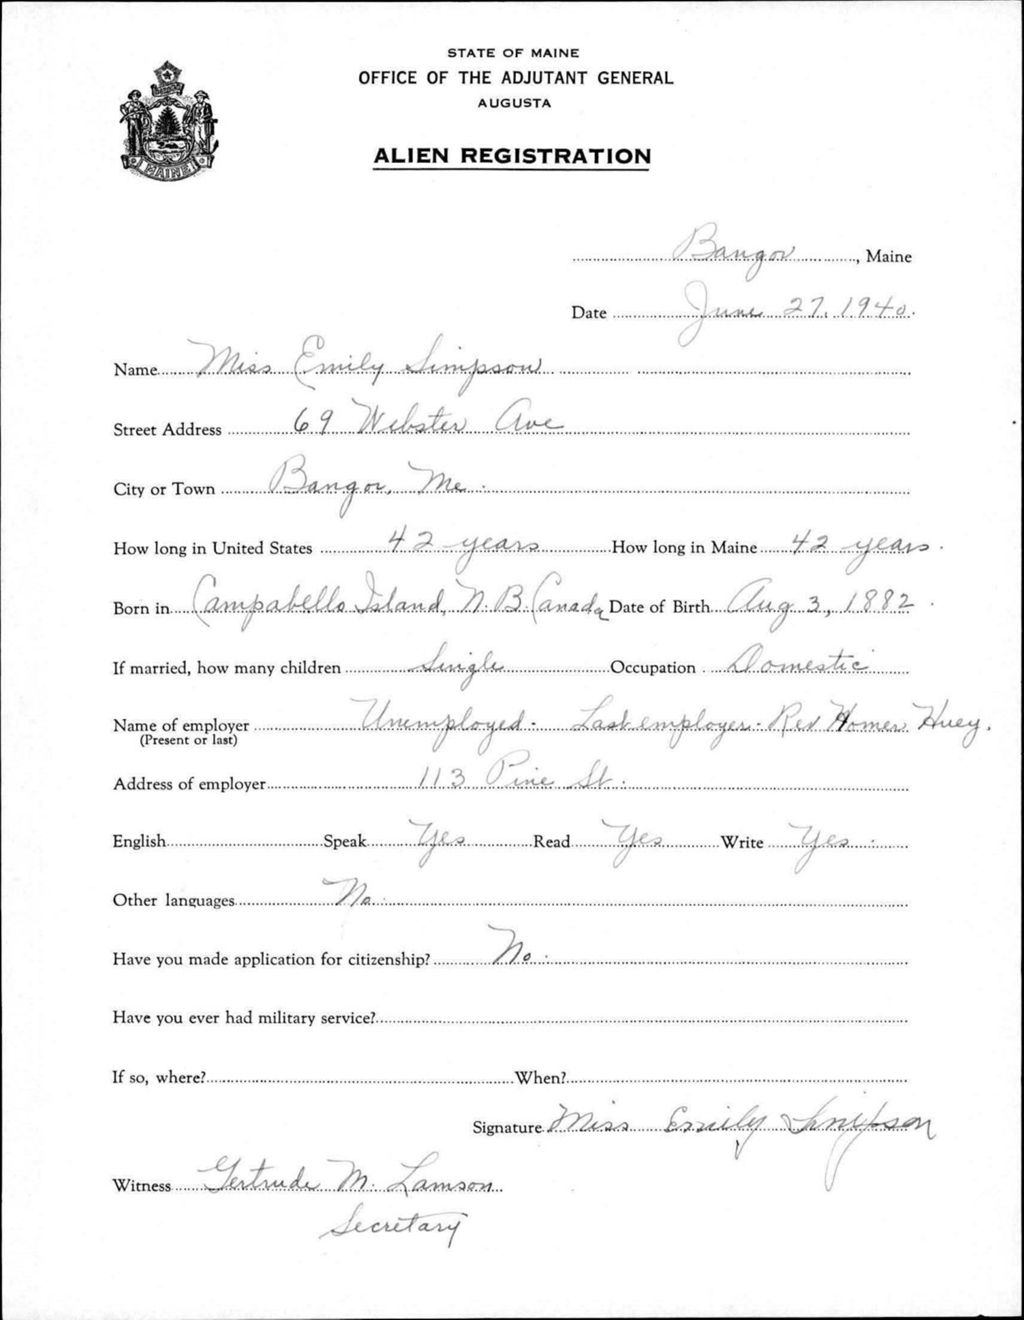 STATE OF MAINE
OFFICE OF THE ADJUTANT GENERAL
AUGUSTA
ALIEN REGISTRATION
MAINE
Bangor, Maine
Date June 27, 1940.
Name Miss Emily Simpson
Street Address 69 Webster Ave
City or Town Bangor, Me.
How long in United States 42 years How long in Maine 42 years.
Born in Campabello Island, N.B. Canada Date of Birth Aug 3, 1882.
If married, how many children Single Occupation Domestic
Name of employer Unemployed - Last employer - Rev Homer Huey.
(Present or last)
Address of employer 113 Pine St.
English Speak Yes Read Yes Write Yes.
Other languages No.
Have you made application for citizenship? No.
Have you ever had military service?
If so, where? When?
Signature Miss Emily Simpson
Witness Gertrude M. Lamson
Secretary